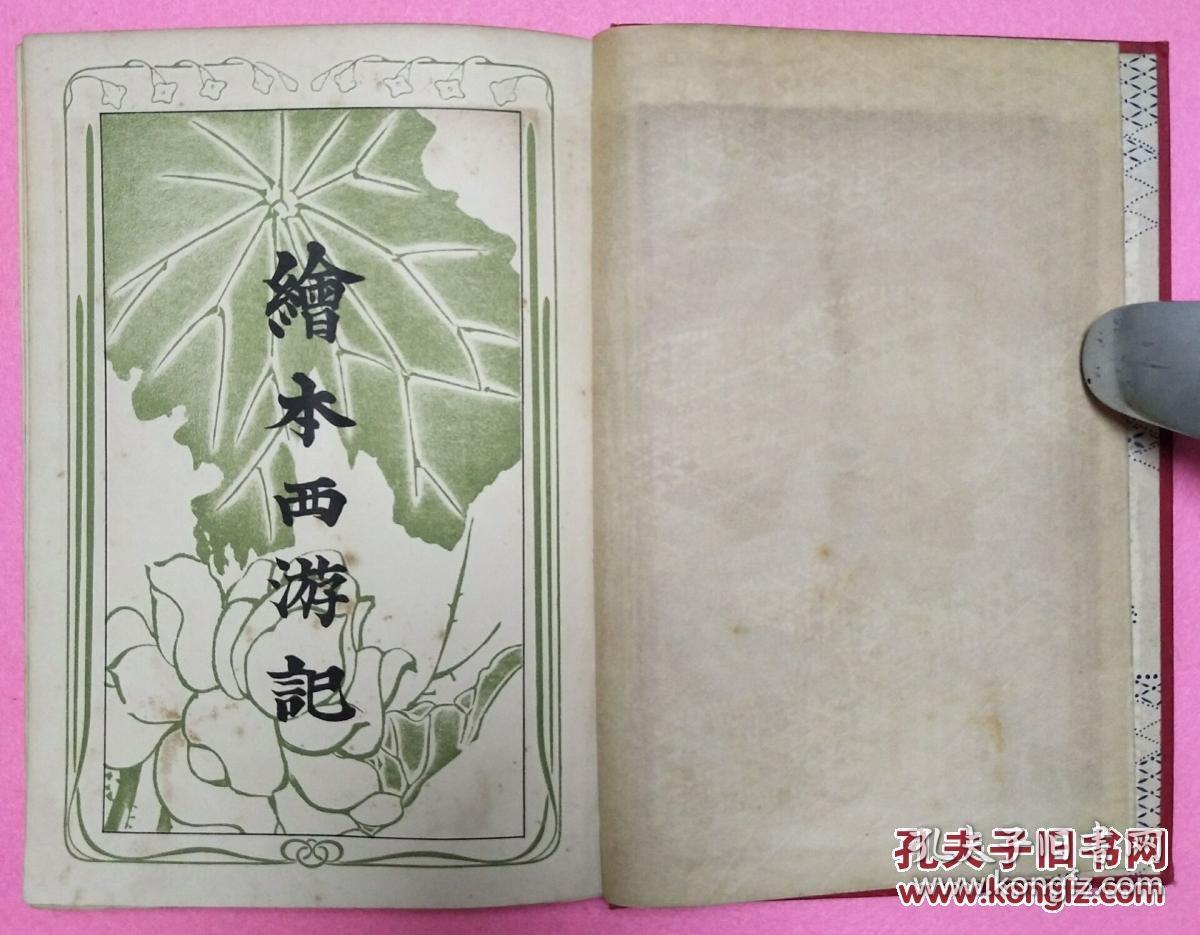 繪本西游記
孔夫子旧书网
www.kongfz.com